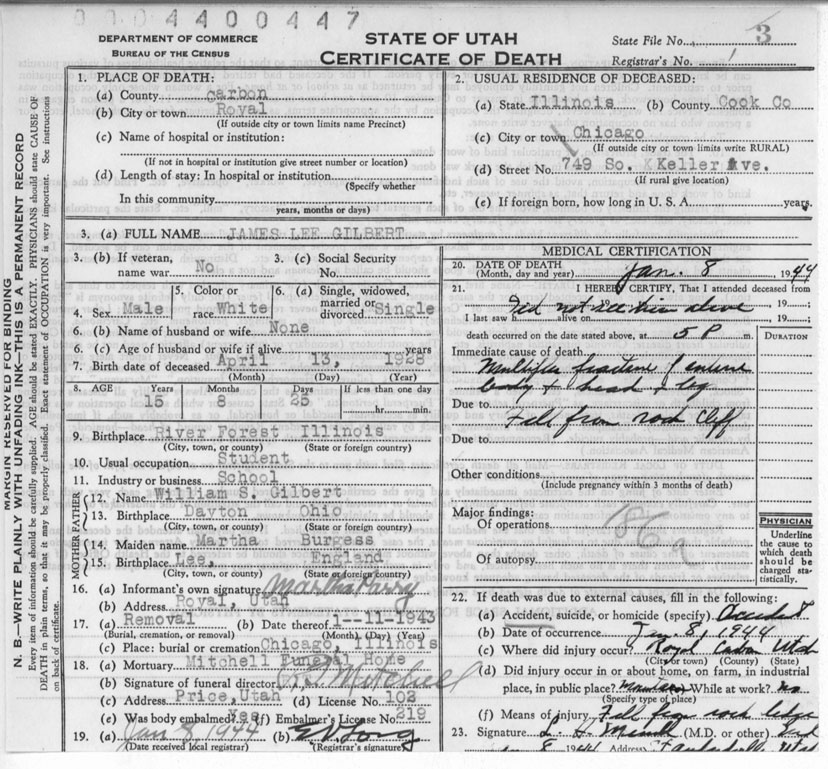 0004400447
DEPARTMENT OF COMMERCE
BUREAU OF THE CENSUS
STATE OF UTAH
CERTIFICATE OF DEATH
State File No. 3
Registrar's No. 1
MARGIN RESERVED FOR BINDING
N. B.—WRITE PLAINLY WITH UNFADING INK—THIS IS A PERMANENT RECORD
Every item of information should be carefully supplied. AGE should be stated EXACTLY. PHYSICIANS should state CAUSE OF
DEATH in plain terms, so that it may be properly classified. Exact statement of OCCUPATION is very important. See instructions
on back of certificate.
1. PLACE OF DEATH:
(a) County Carbon
(b) City or town Royal
(If outside city or town limits name Precinct)
(c) Name of hospital or institution:
(If not in hospital or institution give street number or location)
(d) Length of stay: In hospital or institution
(Specify whether
In this community
years, months or days)
2. USUAL RESIDENCE OF DECEASED:
(a) State Illinois (b) County Cook Co
(c) City or town Chicago
(If outside city or town limits write RURAL)
(d) Street No. 749 So. K Keller Ave.
(If rural give location)
(e) If foreign born, how long in U. S. A. years.
3. (a) FULL NAME JAMES LEE GILBERT
3. (b) If veteran, name war No
3. (c) Social Security No.
4. Sex Male
5. Color or race White
6. (a) Single, widowed, married or divorced Single
6. (b) Name of husband or wife None
6. (c) Age of husband or wife if alive years
7. Birth date of deceased April 13, 1928
(Month) (Day) (Year)
8. AGE Years Months Days If less than one day
15 8 25 hr. min.
9. Birthplace River Forest Illinois
(City, town, or county) (State or foreign country)
10. Usual occupation Student
11. Industry or business School
FATHER
12. Name William S. Gilbert
13. Birthplace Dayton Ohio
(City, town, or county) (State or foreign country)
MOTHER
14. Maiden name Martha Burgess
15. Birthplace Lee, England
(City, town, or county) (State or foreign country)
16. (a) Informant's own signature Martha Parry
(b) Address Royal, Utah
17. (a) Removal (b) Date thereof 1--11-1943
(Burial, cremation, or removal) (Month) (Day) (Year)
(c) Place: burial or cremation Chicago, Illinois
18. (a) Mortuary Mitchell Funeral Home
(b) Signature of funeral director Mitchell
(c) Address Price, Utah (d) License No. 103
(e) Was body embalmed? Yes (f) Embalmer's License No. 219
19. (a) Jan 8 1944 (b) Long
(Date received local registrar) (Registrar's signature)
MEDICAL CERTIFICATION
20. DATE OF DEATH
(Month, day and year) Jan. 8 1944
21. I HEREBY CERTIFY, That I attended deceased from
Did not see him alive 19 ;
I last saw h alive on 19 ;
death occurred on the date stated above, at 5 P m.
DURATION
Immediate cause of death
Multiple fracture of entire
body & head & leg
Due to Fell from rock Cliff
Due to
Other conditions
(Include pregnancy within 3 months of death)
Major findings:
Of operations
186a
Of autopsy
PHYSICIAN
Underline
the cause to
which death
should be
charged sta-
tistically.
22. If death was due to external causes, fill in the following:
(a) Accident, suicide, or homicide (specify) Accident
(b) Date of occurrence Jan. 8, 1944
(c) Where did injury occur? Royal Carbon Utah
(City or town) (County) (State)
(d) Did injury occur in or about home, on farm, in industrial
place, in public place? While at work? No
(Specify type of place)
(f) Means of injury Fell from rock ledge
23. Signature (M.D. or other)
8 1944 Address Utah